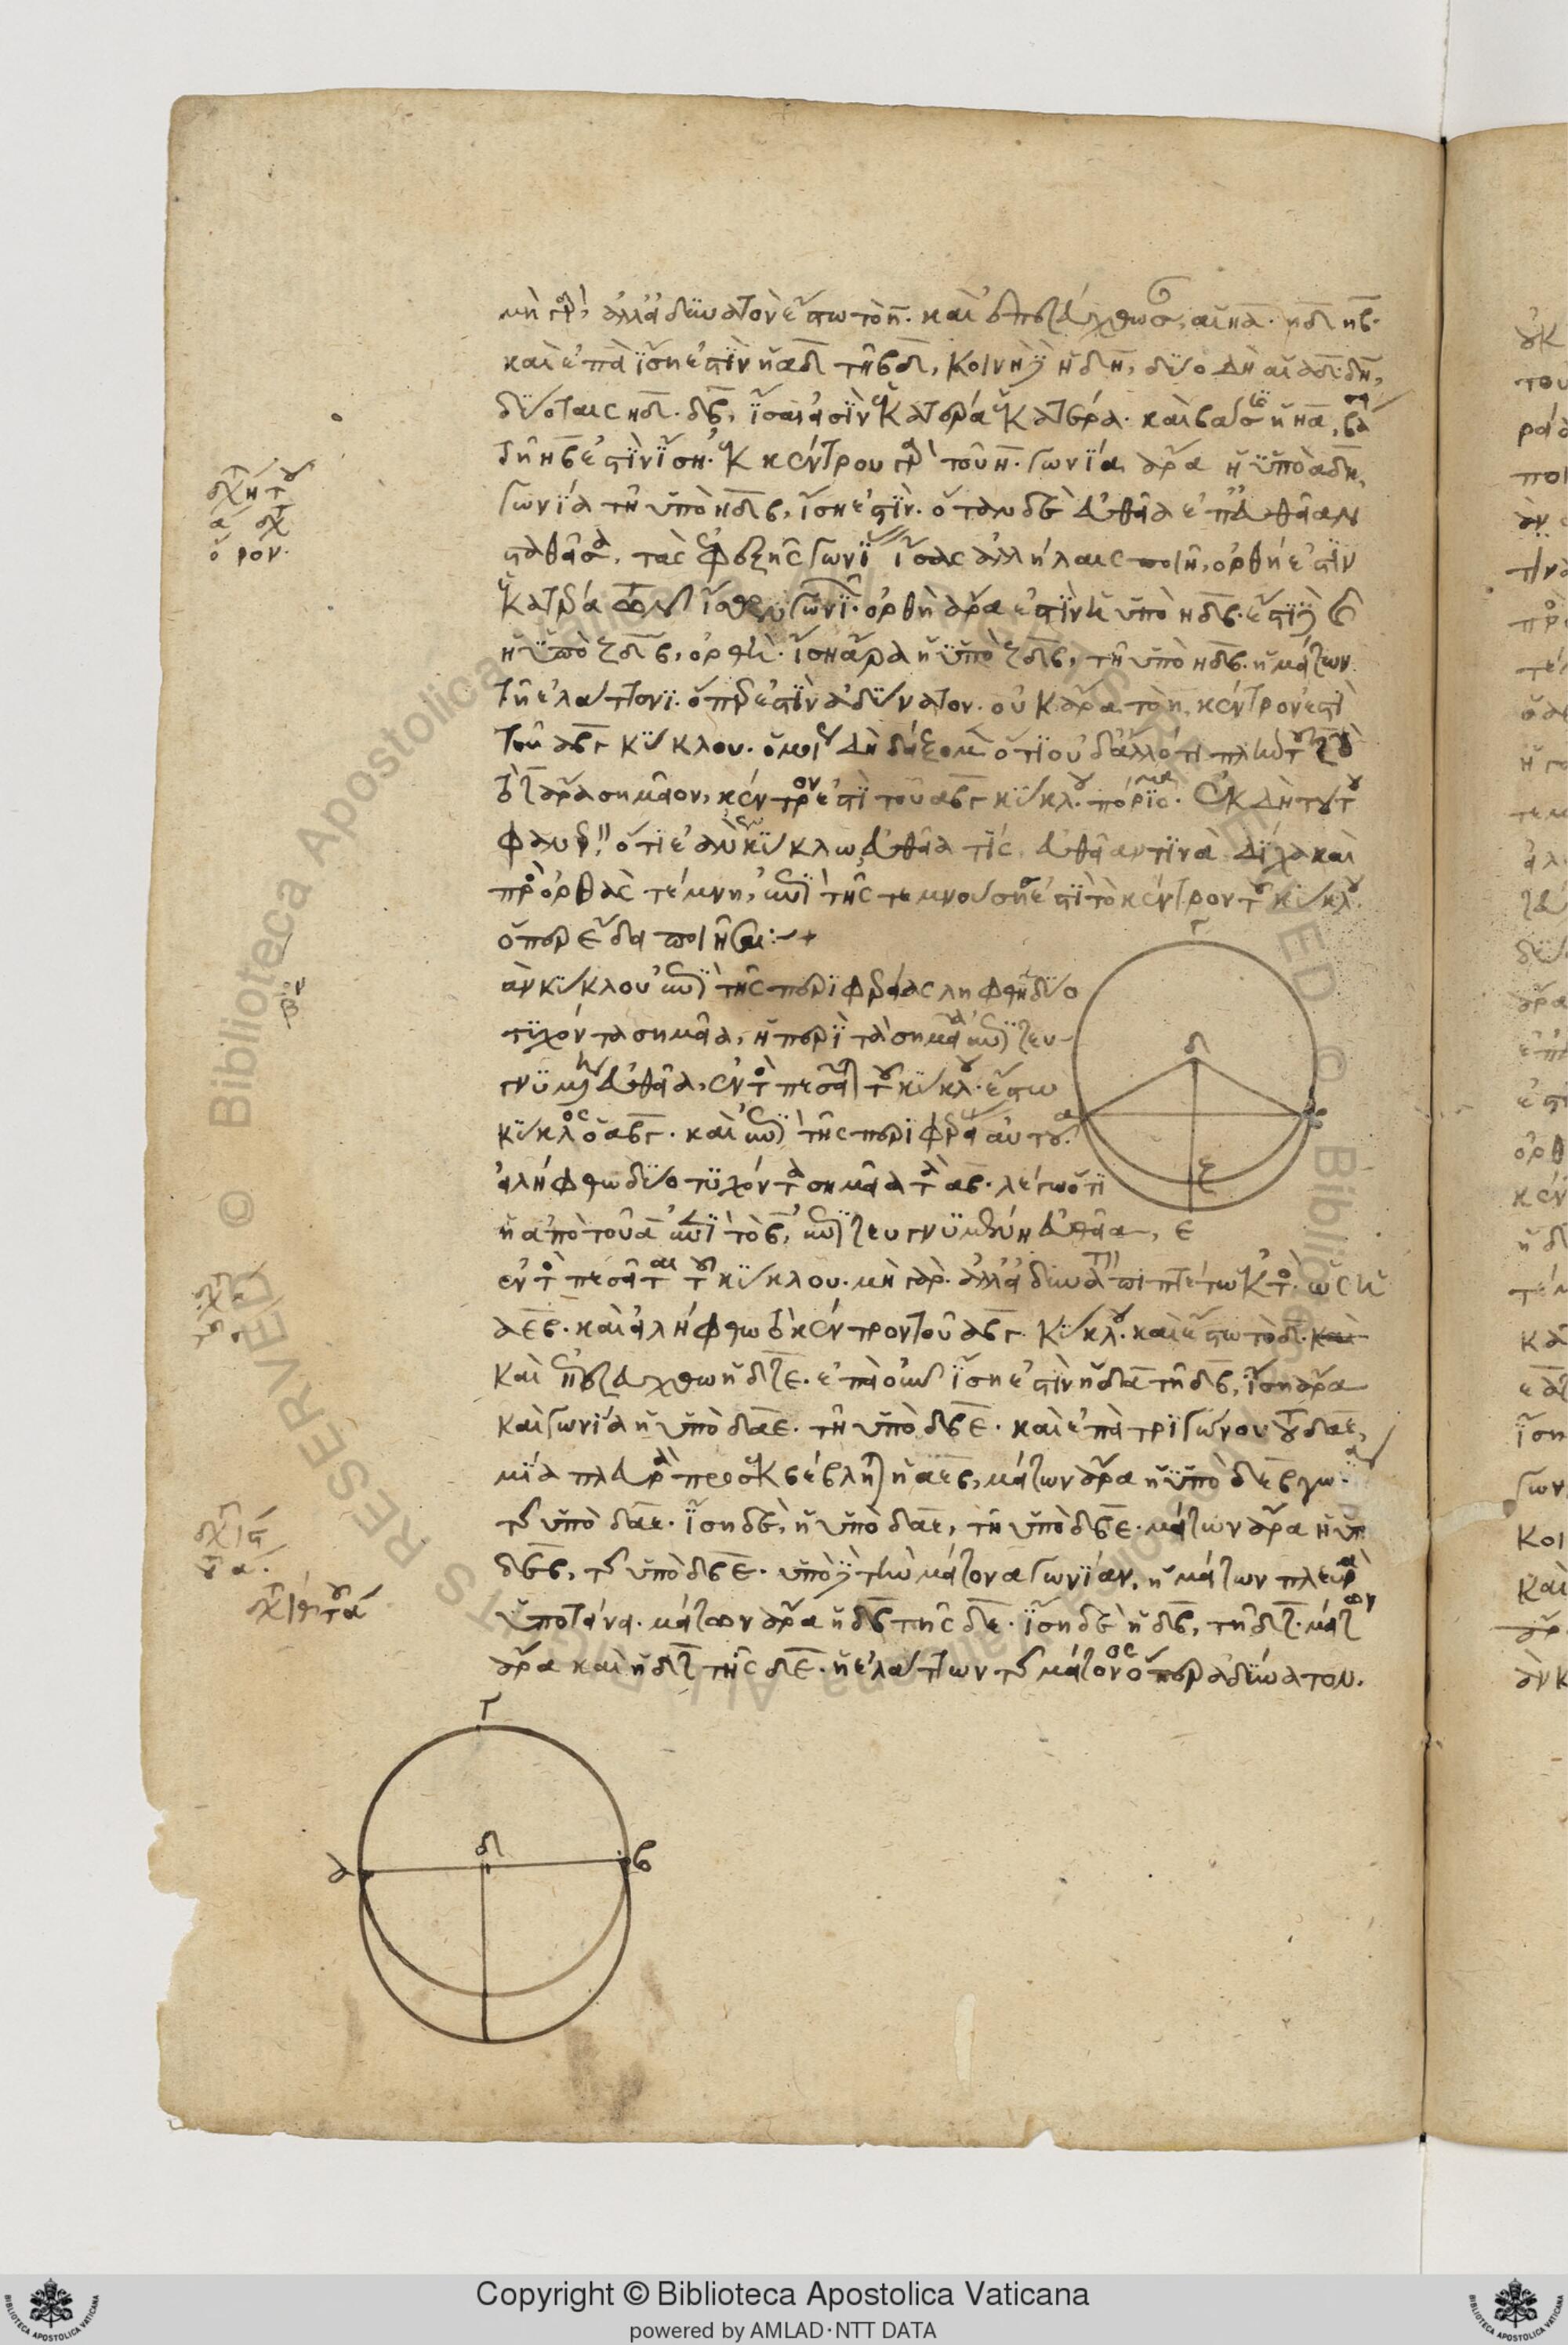 μὴ γὰρ, ἀλλ' εἰ δυνατὸν ἔστω τὸ η. καὶ ἐπεζεύχθωσαν αἱ ηα. ηδ ηβ.
καὶ ἐπεὶ ἴση ἐστὶν ἡ αδ τῇ βδ, κοινὴ δὲ ἡ δη, δύο δὴ αἱ αδ. δη,
δύο ταῖς ηδ. δβ, ἴσαι εἰσὶν ἑκατέρα ἑκατέρα. καὶ βάσις ἡ ηα, βάσει
τῇ ηβ ἐστὶν ἴση. ἐκ κέντρου γὰρ τοῦ η. γωνία ἄρα ἡ ὑπὸ αδη,
γωνία τῇ ὑπὸ ηδβ, ἴση ἐστίν. ὅταν δὲ εὐθεῖα ἐπ' εὐθεῖαν
σταθεῖσα, τὰς ἐφεξῆς γωνί ἴσας ἀλλήλαις ποιῇ, ὀρθή ἐστιν
ἑκατέρα τῶν ἴσων γωνι. ὀρθὴ ἄρα ἐστὶν ἡ ὑπὸ ηδβ. ἔστι δὲ καὶ
ἡ ὑπὸ ζδβ, ὀρθή. ἴση ἄρα ἡ ὑπὸ ζδβ, τῇ ὑπὸ ηδβ. ἡ μείζων
τῇ ἐλάττονι. ὅπερ ἐστὶν ἀδύνατον. οὐκ ἄρα τὸ η, κέντρον ἐστὶ
τοῦ αβγ κύκλου. ὁμοίως δὴ δείξομεν ὅτι οὐδ' ἄλλό τι πλὴν τοῦ ζ
τὸ ζ ἄρα σημεῖον, κέντρον ἐστὶ τοῦ αβγ κύκλου. πόρισμα. ἐκ δὴ τούτου
φανερὸν, ὅτι ἐὰν ἐν κύκλω, εὐθεῖα τίς, εὐθεῖαν τινὰ δίχα καὶ
πρὸς ὀρθὰς τέμνη, ἐπὶ τῆς τεμνούσης ἐστὶ τὸ κέντρον τοῦ κύκλου.
ὅπερ ἔδει ποιῆσαι:
ὰν κύκλου ἐπὶ τῆς περιφερείας ληφθῆ δύο
τυχόντα σημεῖα, ἡ περὶ τὰ σημεῖα ἐπιζευ-
γνυμένη εὐθεῖα, ἐντὸς πεσεῖται τοῦ κύκλου. ἔστω
κύκλος ὁ αβγ. καὶ ἐπὶ τῆς περιφερείας αὐτοῦ.
εἰλήφθω δύο τυχόντα σημεῖα τὰ αβ. λέγω ὅτι
ἡ ἀπὸ τοῦ α ἐπὶ τὸ β, ἐπιζευγνυμένη εὐθεῖα,
ἐντὸς πεσεῖται τοῦ κύκλου. μὴ γὰρ. ἀλλ' εἰ δυνατὸν πιπτέτω ἐκτὸς. ὡς ἡ
αεβ. καὶ εἰλήφθω τὸ κέντρον τοῦ αβγ κύκλου. καὶ ἔστω τὸ δ. καὶ
καὶ ἐπεζεύχθω ἡ δζε. ἐπεὶ οὖν ἴση ἐστὶν ἡ δα τῇ δβ, ἴση ἄρα
καὶ γωνία ἡ ὑπὸ δαε. τῇ ὑπὸ δβε. καὶ ἐπεὶ τριγώνου τοῦ δαε,
μία πλευρὰ προσεκβέβληται ἡ αεβ, μείζων ἄρα ἡ ὑπὸ δεβ γωνία
τῆς ὑπὸ δαε. ἴση δὲ, ἡ ὑπὸ δαε, τῇ ὑπὸ δβε. μείζων ἄρα ἡ ὑπ
δεβ, τῆς ὑπὸ δβε. ὑπὸ δὲ τὴν μείζονα γωνίαν, ἡ μείζων πλευρὰ
ὑποτείνει. μείζων ἄρα ἡ δβ τῆς δε. ἴση δὲ ἡ δβ, τῇ δζ. μείζων
ἄρα καὶ ἡ δζ τῆς δε. ἡ ἐλάττων τῆς μείζονος ὅπερ ἀδύνατον.
γ
δ
α
ζ
ε
γ
δ
α
β